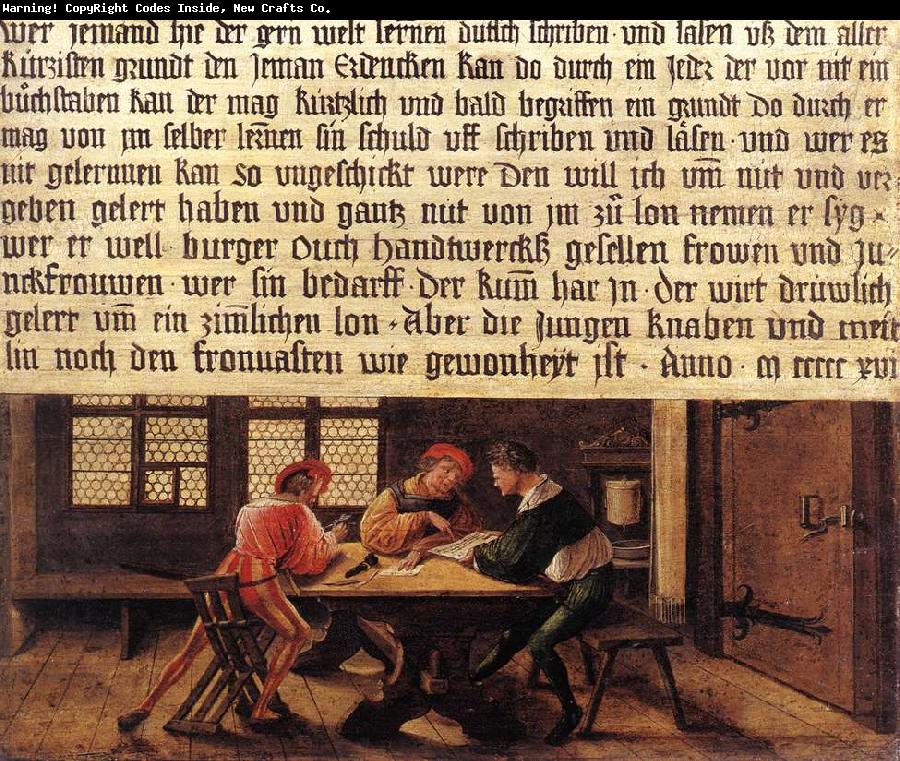 Warning! CopyRight Codes Inside, New Crafts Co.
wer jemand hie der gern welt lernen dutsch schriben · und läsen uß dem aller
kürzisten grundt den jeman Erdencken kan do durch ein jeder der vor nit ein
bůchstaben kan der mag kürtzlich und bald begriffen ein grundt do durch er
mag von jm selber lernen sin schuld uff schriben und läsen · und wer es
nit gelernnen kan so ungeschickt were Den will ich um̄ nüt und ver⸗
geben gelert haben und gantz nüt von jm zů lon nemen er syg ·
wer er well · burger Ouch handtwerckß gesellen frowen und ju⸗
nckfrouwen · wer sin bedarff · Der kum̄ har jn · der wirt drüwlich
gelert um̄ ein zim̄lichen lon · Aber die jungen knaben und meit
lin noch den fronuasten wie gewonheyt ist · Anno · m ccccc xvi